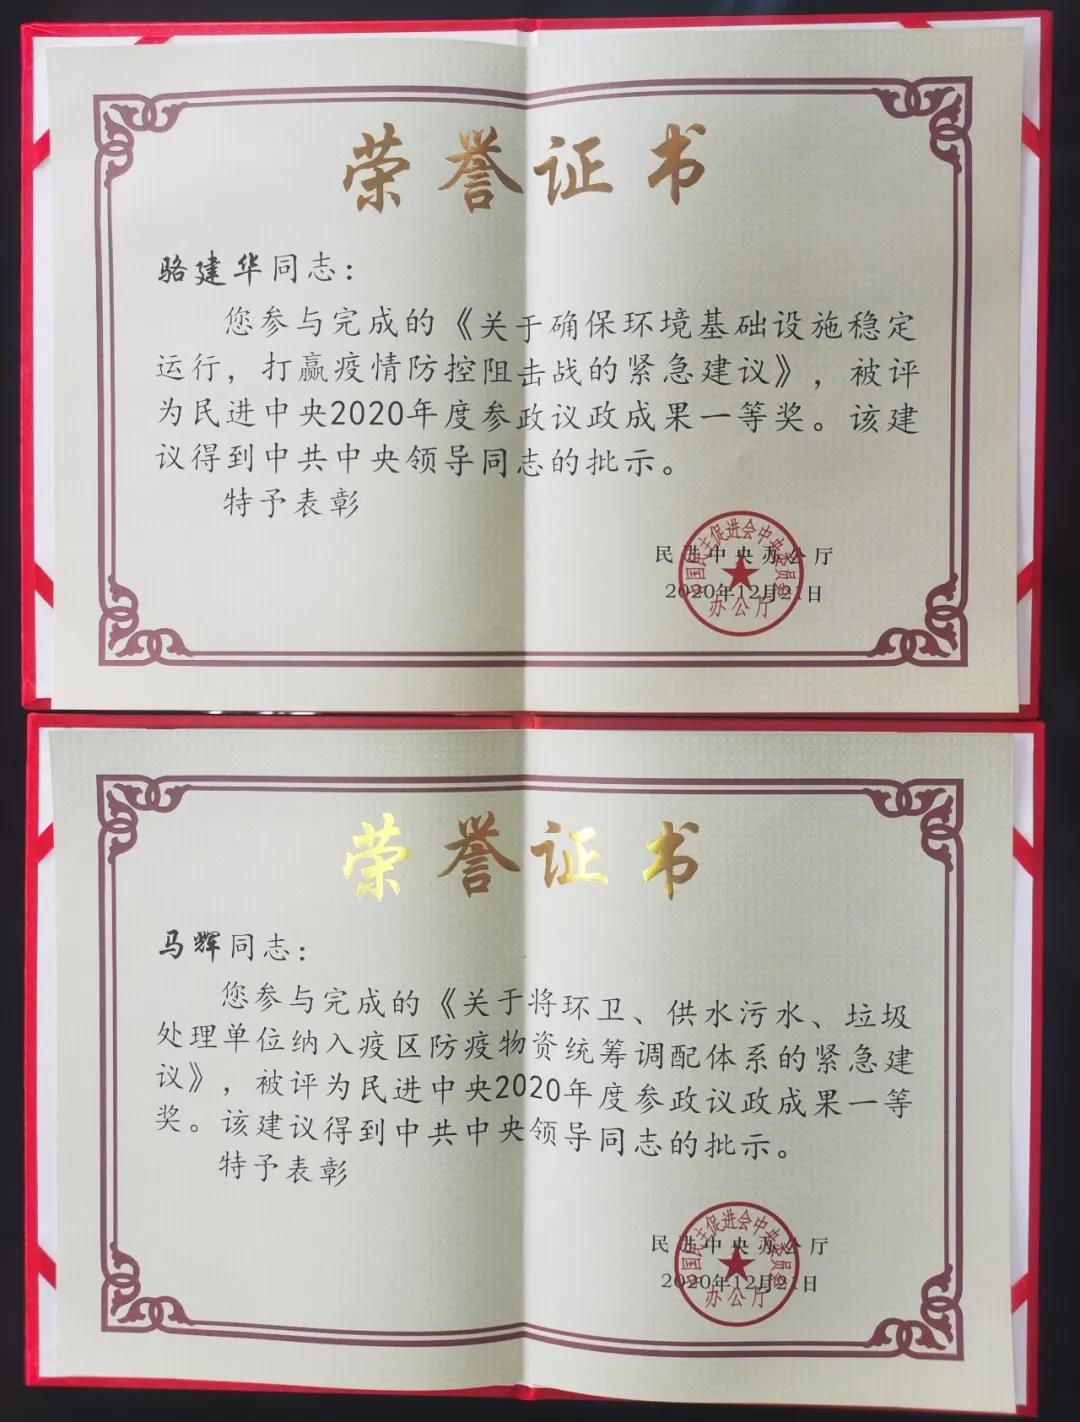 荣誉证书
骆建华同志：
您参与完成的《关于确保环境基础设施稳定
运行，打赢疫情防控阻击战的紧急建议》，被评
为民进中央2020年度参政议政成果一等奖。该建
议得到中共中央领导同志的批示。
特予表彰
民进中央办公厅
2020年12月21日
中国民主促进会中央委员会
办公厅
荣誉证书
马辉同志：
您参与完成的《关于将环卫、供水污水、垃圾
处理单位纳入疫区防疫物资统筹调配体系的紧急建
议》，被评为民进中央2020年度参政议政成果一等
奖。该建议得到中共中央领导同志的批示。
特予表彰
民进中央办公厅
2020年12月21日
中国民主促进会中央委员会
办公厅